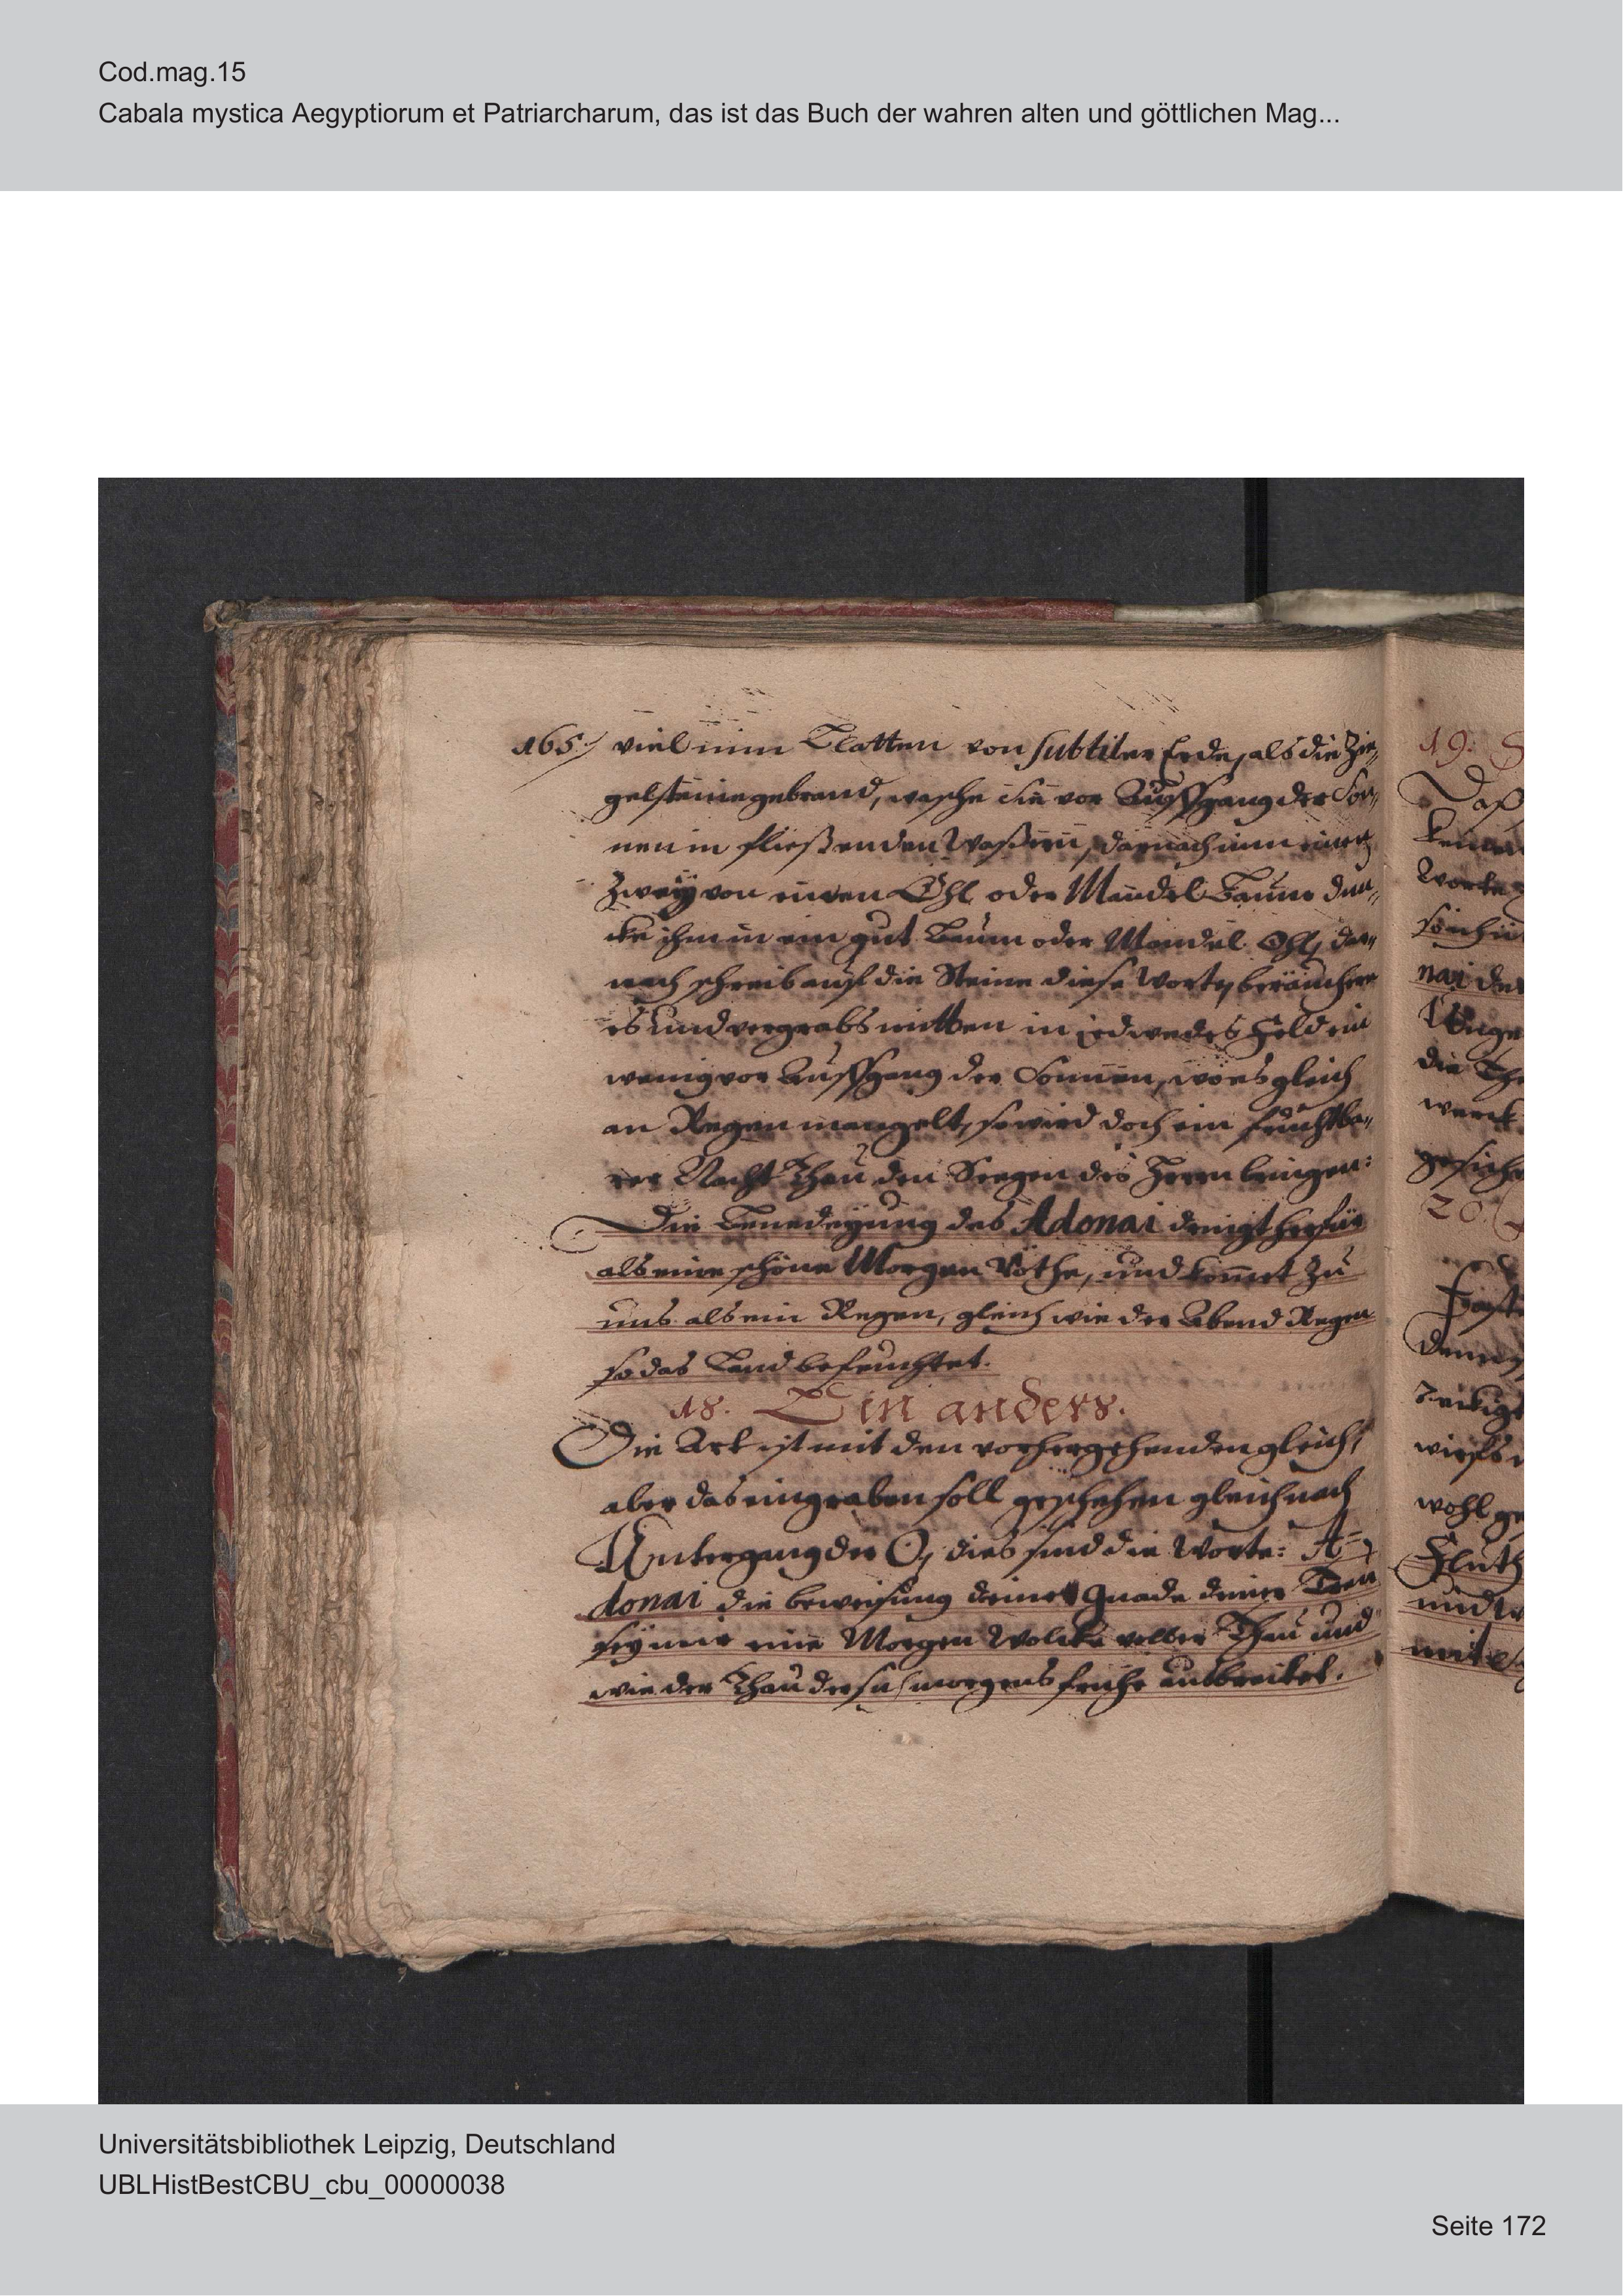 Cod.mag.15
Cabala mystica Aegyptiorum et Patriarcharum, das ist das Buch der wahren alten und göttlichen Mag...
165. viel nim Platten von subtiler Erde, als die Zie„
gelsteine gebrand, wasche sie vor Auffgang der Son„
nen in fließenden Waßern, darnach nim einen
Zweÿ von einen Öhl oder Mandel Baum dun„
cke ihm in ein gut Baum oder Mandel Öhl, dar„
nach schreib auf die Steine diese Worte, beräuchere
es und vergrabs mitten in jedwedes Feld ein
wenig vor Auffgang der Sonnen, wo es gleich
an Regen mangelt, so wird doch ein fruchtba„
rer Nacht Thau den Seegen des Herrn bringen:
Die Benedeÿung des Adonai herfür
als eine schöne Morgen Röthe, und komet zu
uns als ein Regen, gleich wie der Abend Regen
so das Land befeuchtet.
18. Ein anders.
Die Art ist mit den vorhergehenden gleich,
aber das eingraben soll geschehen gleich nach
Untergang der ☉, dies sind die Worte: A=
donai die beweisung deiner Gnade deiner Treu
seÿ mir eine Morgen Wolcke voller Thau und
wie der Thau der sich morgens frühe ausbreitet.
19.
Daß
Worte
nai der
die
werck
20.
wohl ge
Fluth
und
mit
Universitätsbibliothek Leipzig, Deutschland
UBLHistBestCBU_cbu_00000038
Seite 172